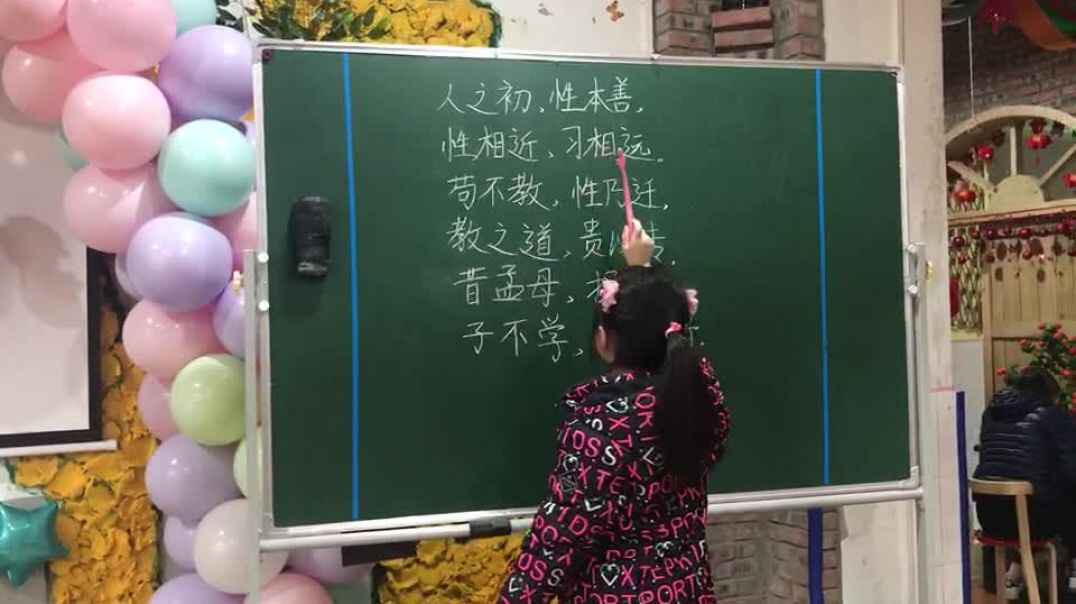 人之初、性本善,
性相近、习相远。
苟不教,性乃迁,
教之道、贵
昔孟母、
子不学,